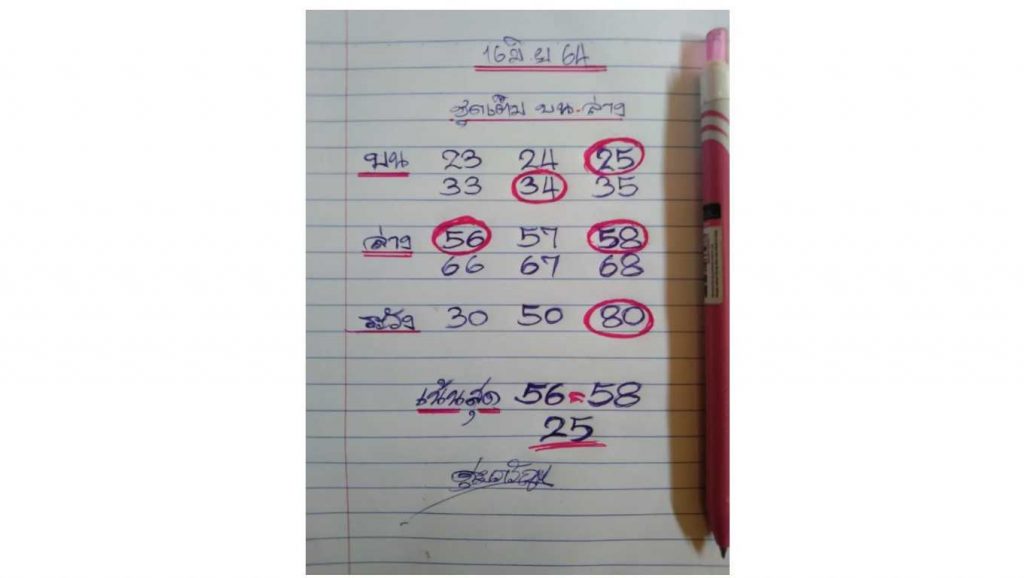 16 มิ.ย 64
ชุดเต็ม บน-ล่าง
บน 23 24 25
33 34 35
ล่าง 56 57 58
66 67 68
ระวัง 30 50 80
เน้นสุด 56=58
25